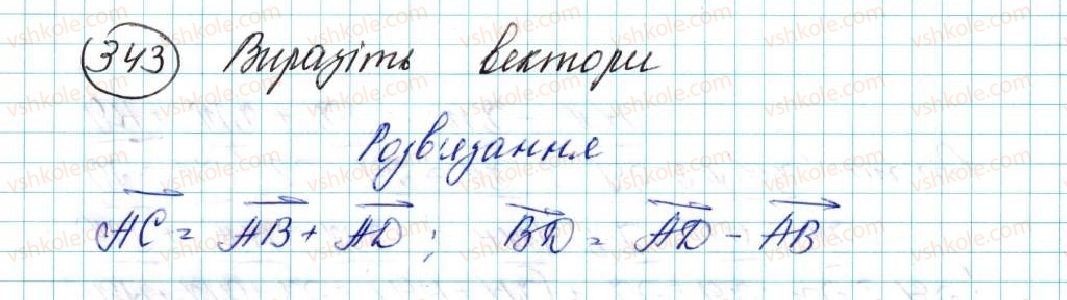 343 Виразіть вектори
Розв'язання
$\overrightarrow{AC} = \overrightarrow{AB} + \overrightarrow{AD}$; $\overrightarrow{BD} = \overrightarrow{AD} - \overrightarrow{AB}$